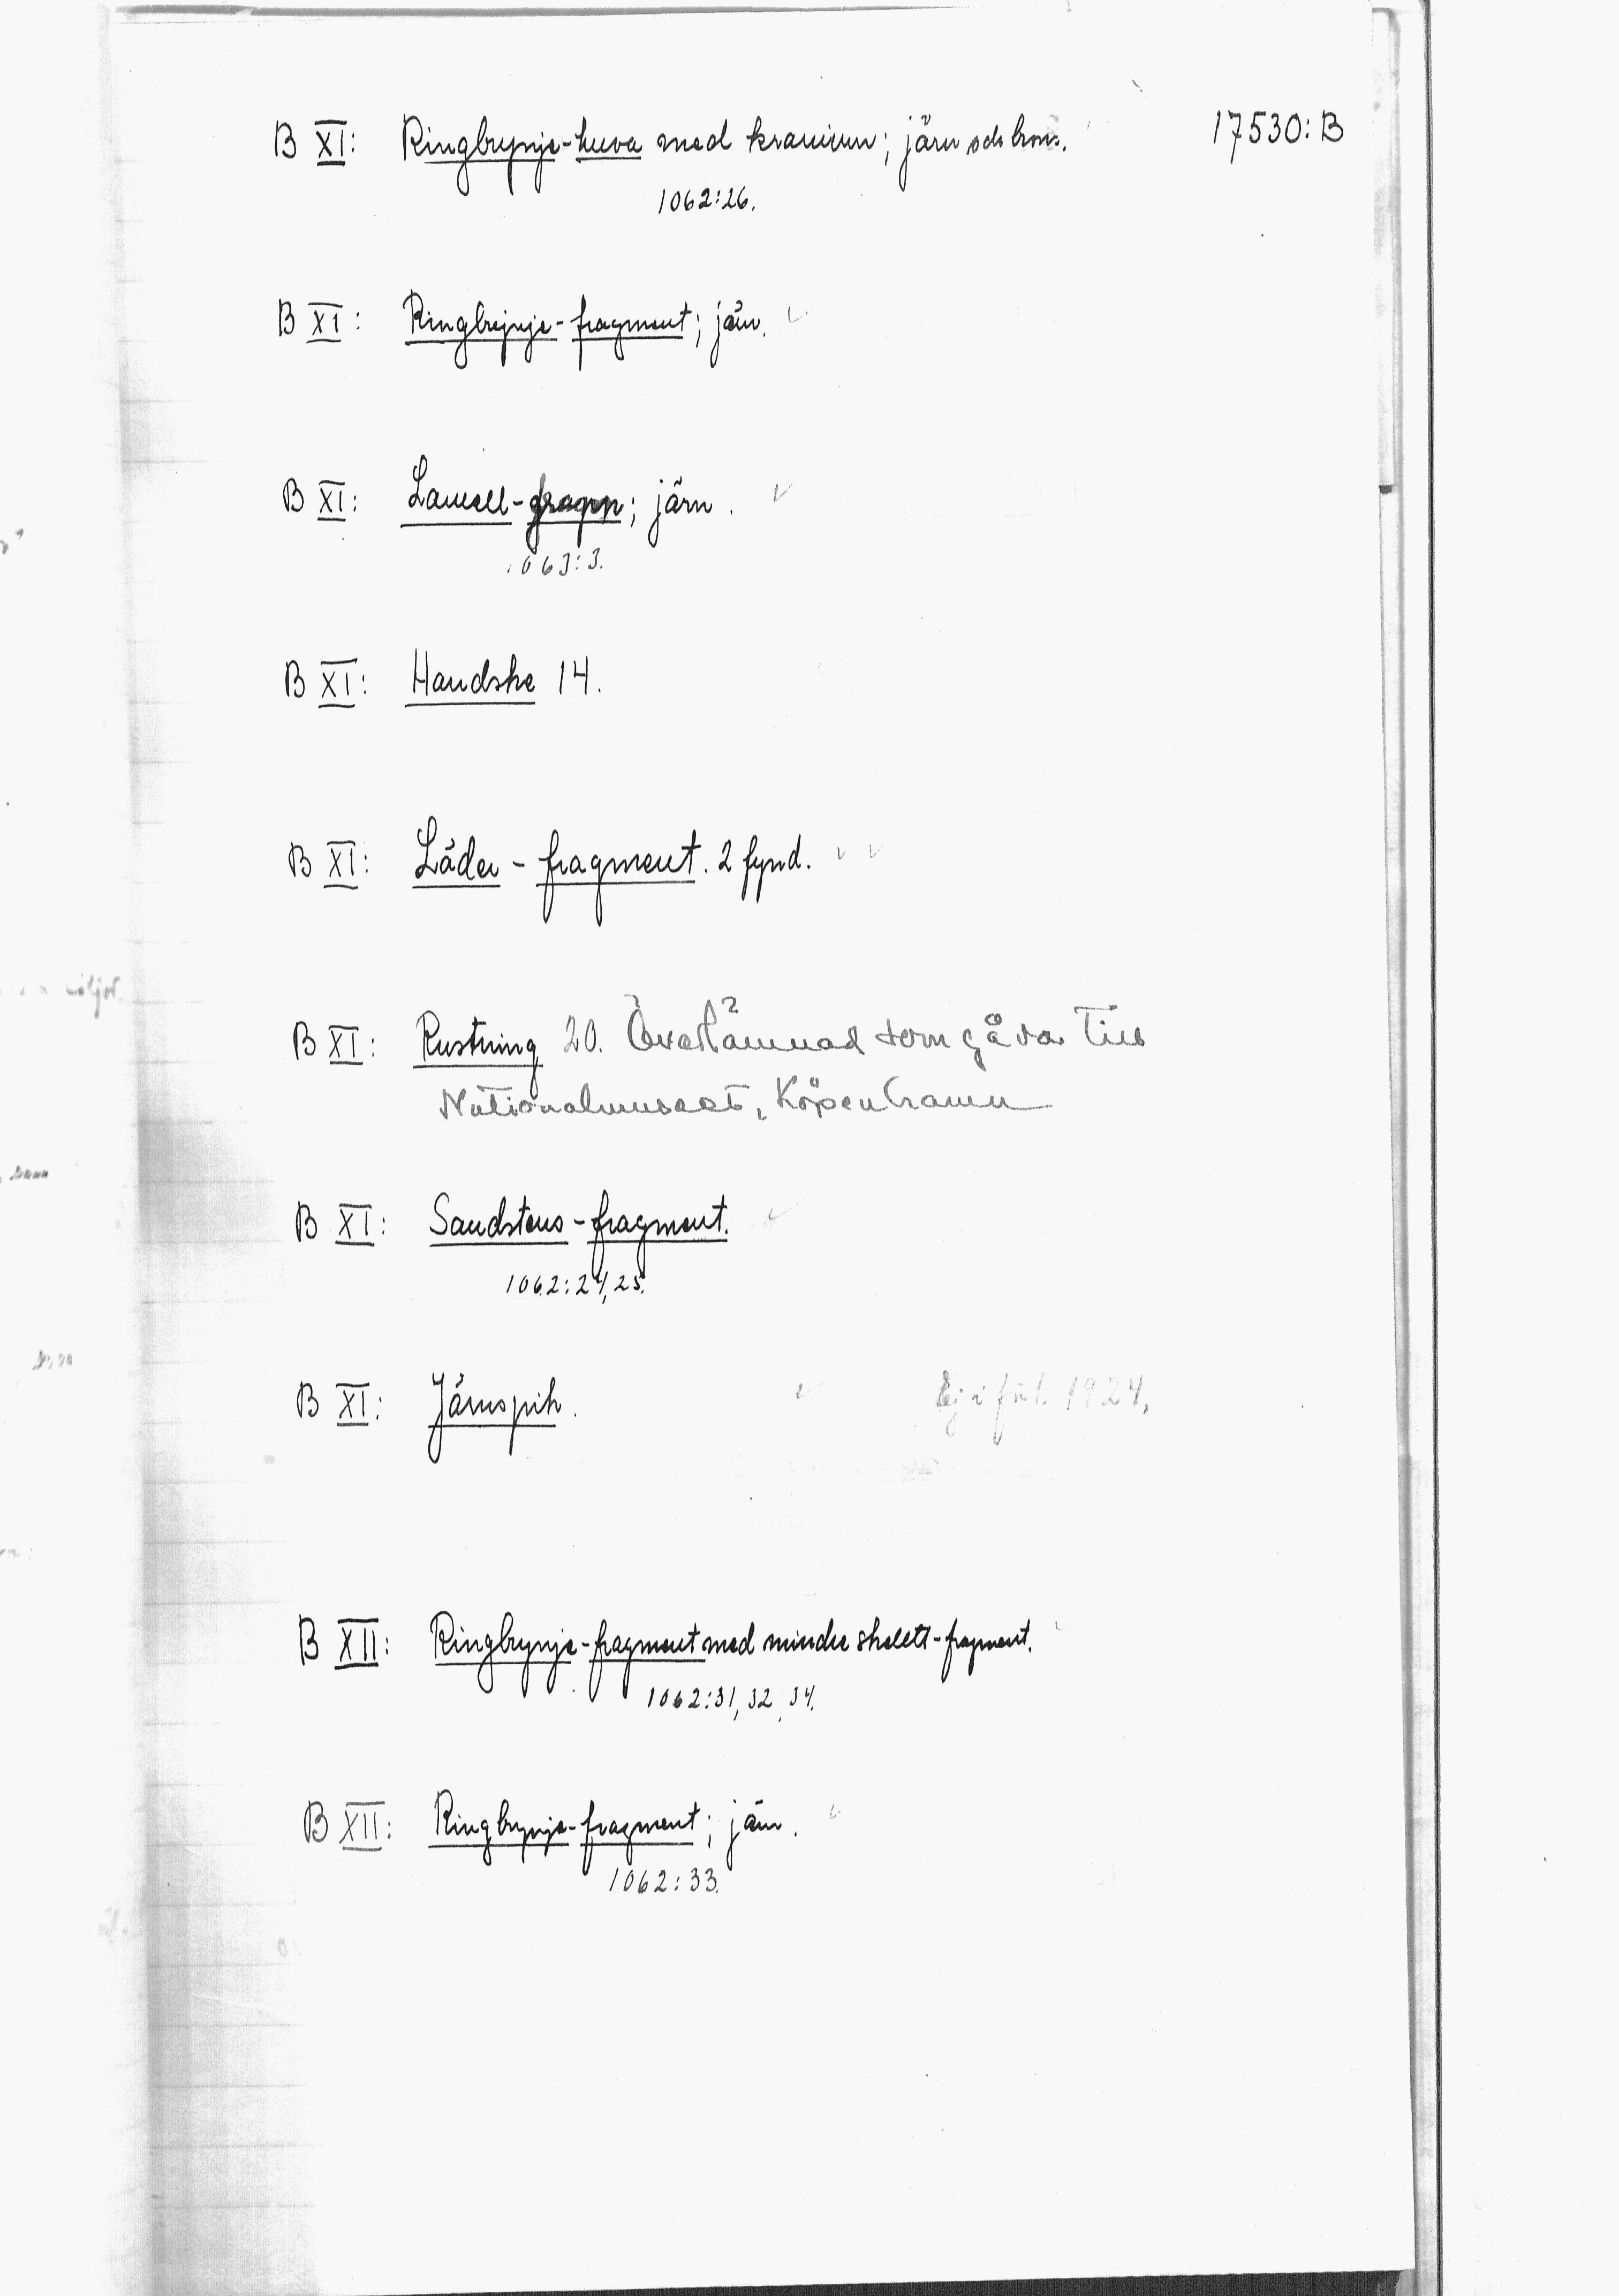 17530:B
B XI: Ringbrynje-huva med kranium; järn och brons.
1062:26.
B XI: Ringbrynje-fragment; järn.
B XI: Lamell-grupp; järn.
1063:3.
B XI: Handske 14.
B XI: Läder-fragment. 2 fynd.
B XI: Rustning 20. Överlämnad som gåva till
Nationalmuseet, Köpenhamn
B XI: Sandstens-fragment.
1062:24,25.
B XI: Järnspik. Ej i 1924.
B XII: Ringbrynje-fragment med mindre skelett-fragment.
1062:31, 32, 34.
B XII: Ringbrynje-fragment; järn.
1062:33.